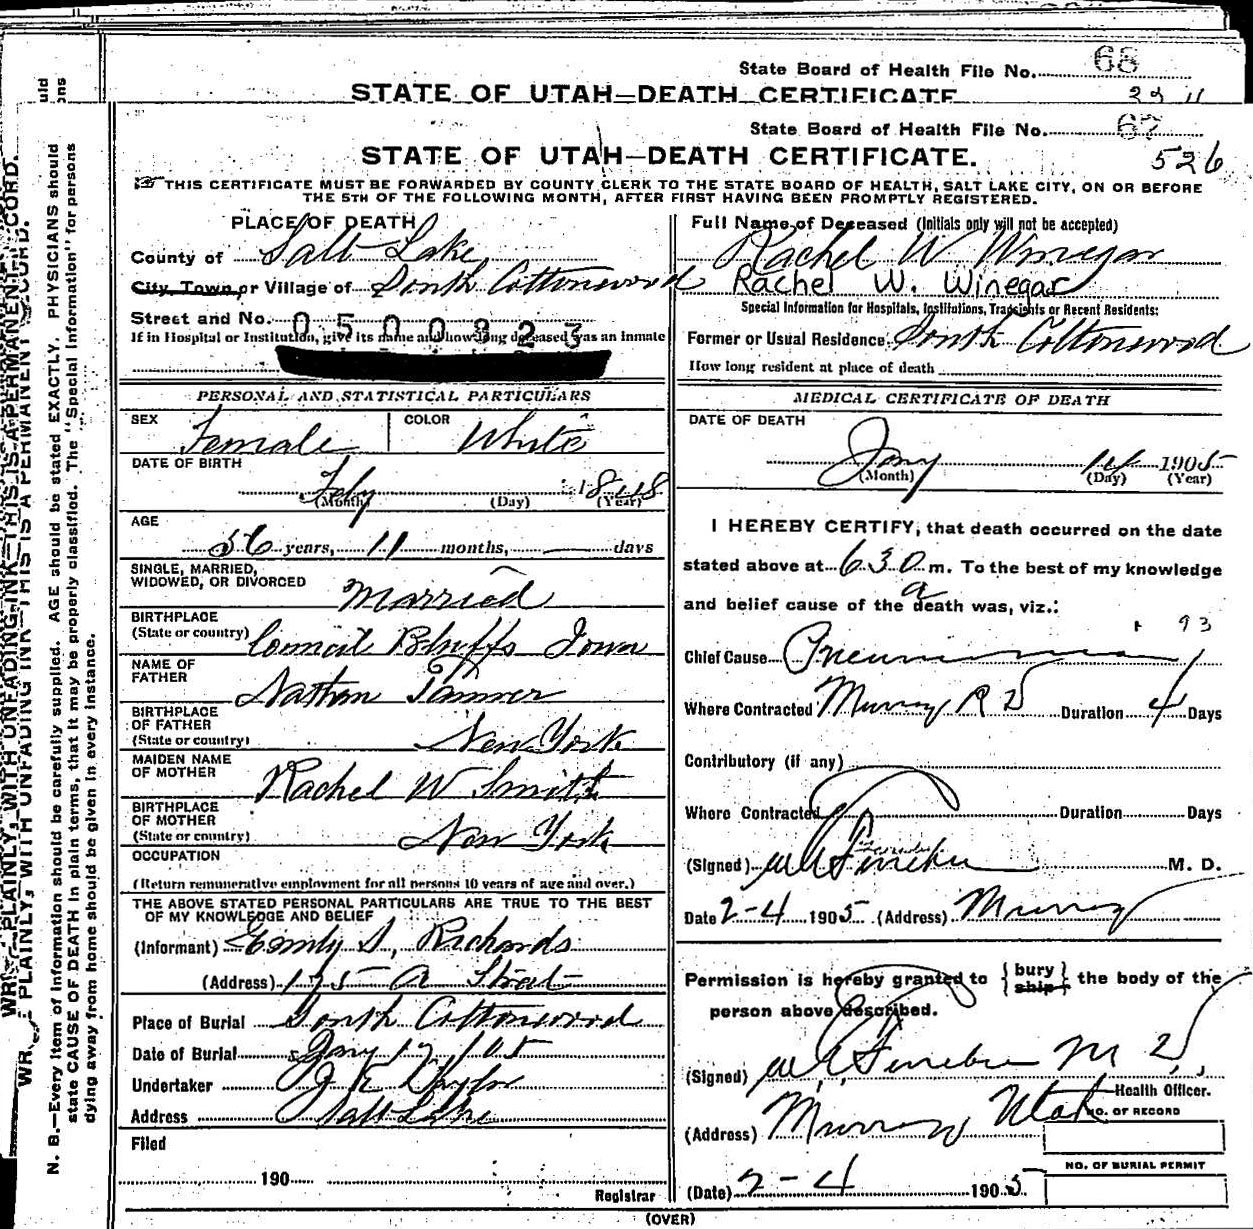 State Board of Health File No. 68
STATE OF UTAH—DEATH CERTIFICATE
State Board of Health File No. 67
STATE OF UTAH—DEATH CERTIFICATE.
526
THIS CERTIFICATE MUST BE FORWARDED BY COUNTY CLERK TO THE STATE BOARD OF HEALTH, SALT LAKE CITY, ON OR BEFORE
THE 5TH OF THE FOLLOWING MONTH, AFTER FIRST HAVING BEEN PROMPTLY REGISTERED.
PLACE OF DEATH
County of Salt Lake
City, Town, or Village of South Cottonwood
Street and No. 0500823
If in Hospital or Institution, give its name and how long deceased was an inmate
PERSONAL AND STATISTICAL PARTICULARS
SEX Female COLOR White
DATE OF BIRTH
Feby 1848
(Month) (Day) (Year)
AGE
56 years, 11 months, — days
SINGLE, MARRIED,
WIDOWED, OR DIVORCED Married
BIRTHPLACE
(State or country) Council Bluffs Iowa
NAME OF
FATHER Nathan Tanner
BIRTHPLACE
OF FATHER
(State or country) New York
MAIDEN NAME
OF MOTHER Rachel W Smith
BIRTHPLACE
OF MOTHER
(State or country) New York
OCCUPATION
(Return remunerative employment for all persons 10 years of age and over.)
THE ABOVE STATED PERSONAL PARTICULARS ARE TRUE TO THE BEST
OF MY KNOWLEDGE AND BELIEF
(Informant) Emily S. Richards
(Address) 175 A Street
Place of Burial South Cottonwood
Date of Burial Jany 17 1905
Undertaker J E Taylor
Address Salt Lake
Filed
190
Registrar
Full Name of Deceased (Initials only will not be accepted)
Rachel W Winegar
Rachel W. Winegar
Special Information for Hospitals, Institutions, Transients or Recent Residents:
Former or Usual Residence South Cottonwood
How long resident at place of death
MEDICAL CERTIFICATE OF DEATH
DATE OF DEATH
Jany 14 1905
(Month) (Day) (Year)
I HEREBY CERTIFY, that death occurred on the date
stated above at 630 a m. To the best of my knowledge
and belief cause of the death was, viz.:
93
Chief Cause Pneumonia
Where Contracted Murray R D Duration 4 Days
Contributory (if any)
Where Contracted Duration Days
(Signed) M. D.
Date 2-4 1905 (Address) Murray
Permission is hereby granted to { bury ship } the body of the
person above described.
(Signed) M D
Health Officer.
(Address) Murray Utah
NO. OF RECORD
NO. OF BURIAL PERMIT
(Date) 2-4 1905
(OVER)
WRITE PLAINLY, WITH UNFADING INK—THIS IS A PERMANENT RECORD.
N. B.—Every item of information should be carefully supplied. AGE should be stated EXACTLY. PHYSICIANS should
state CAUSE OF DEATH in plain terms, that it may be properly classified. The "Special Information" for persons
dying away from home should be given in every instance.